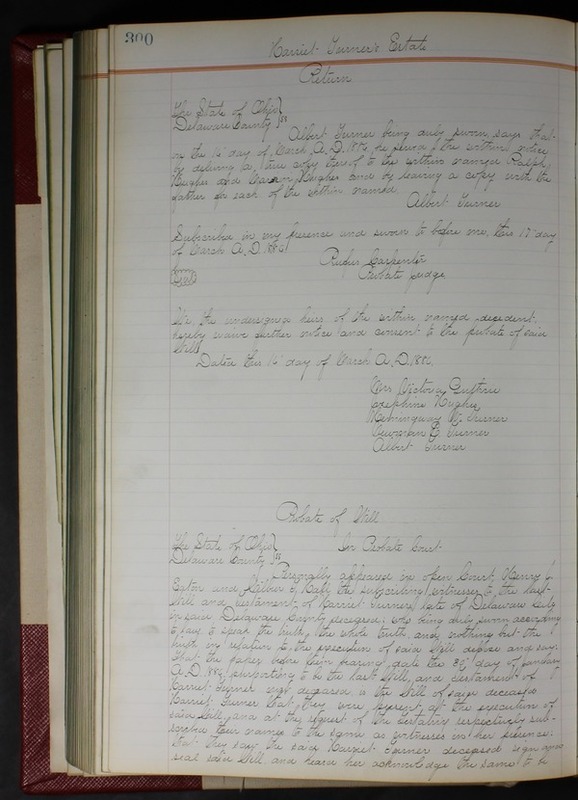 300
Harriet Turner's Estate
Return
The State of Ohio }
Delaware County } ss
Albert Turner being duly sworn, says that
on the day of March A.D. he served the within notice
by delivering a true copy thereof to the within named Ralph
Hughes and Hughes and by leaving a copy with the
father for each of the within named.
Albert Turner
Subscribed in my presence and sworn to before me, this 17" day
of March A.D.
Rufus Carpenter
Seal
Probate Judge
We, the undersigned heirs of the within named decedent,
hereby waive further notice and consent to the probate of said
Will.
Dated this day of March A.D.
Mrs Victoria Guthrie
Josephine Hughes
Hemingway W. Turner
Turner
Albert Turner
Probate of Will
The State of Ohio }
Delaware County } ss
In Probate Court
Personally appeared in open Court, Henry
Eaton and the subscribing witnesses to the last
Will and testament of Harriet Turner, late of Delaware City
in said Delaware County deceased; who being duly sworn according
to law to speak the truth, the whole truth, and nothing but the
truth, in relation to the execution of said Will depose and say:
That the paper before them bearing date the day of January
A.D. purporting to be the last Will, and testament of
Harriet Turner now deceased is the Will of said deceased
Harriet Turner that they were present at the execution of
said Will, and at the request of the testatrix respectively sub-
scribed their names to the same as witnesses in her presence:
That they saw the said Harriet Turner deceased sign and
seal said Will and heard her acknowledge the same to be